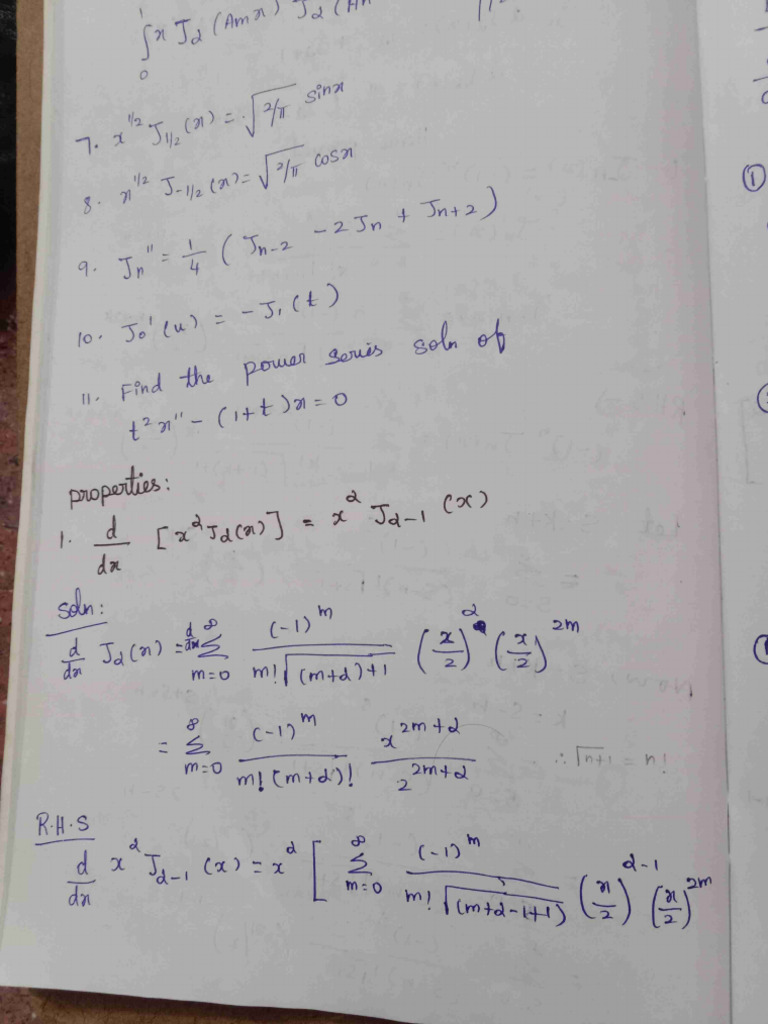 1
∫ x J_α (λm x) J_α (λn
0
7. x^{1/2} J_{1/2} (x) = √(2/π) sinx
8. x^{1/2} J_{-1/2} (x) = √(2/π) cosx
9. J_n'' = 1/4 ( J_{n-2} - 2 J_n + J_{n+2} )
10. J_0' (u) = - J_1 (t)
11. Find the power series soln of
t² x'' - (1+t) x = 0
properties:
1. d/dx [x^α J_α(x)] = x^α J_{α-1} (x)
soln:
d/dx J_α(x) = d/dx ∑_{m=0}^{∞} (-1)^m / m! √(m+α)+1 (x/2)^α (x/2)^{2m}
= ∑_{m=0}^{∞} (-1)^m / m! (m+α)! x^{2m+α} / 2^{2m+α}
R.H.S
d/dx x^α J_{α-1} (x) = x^α [ ∑_{m=0}^{∞} (-1)^m / m! √(m+α-1+1) (x/2)^{α-1} (x/2)^{2m}
①